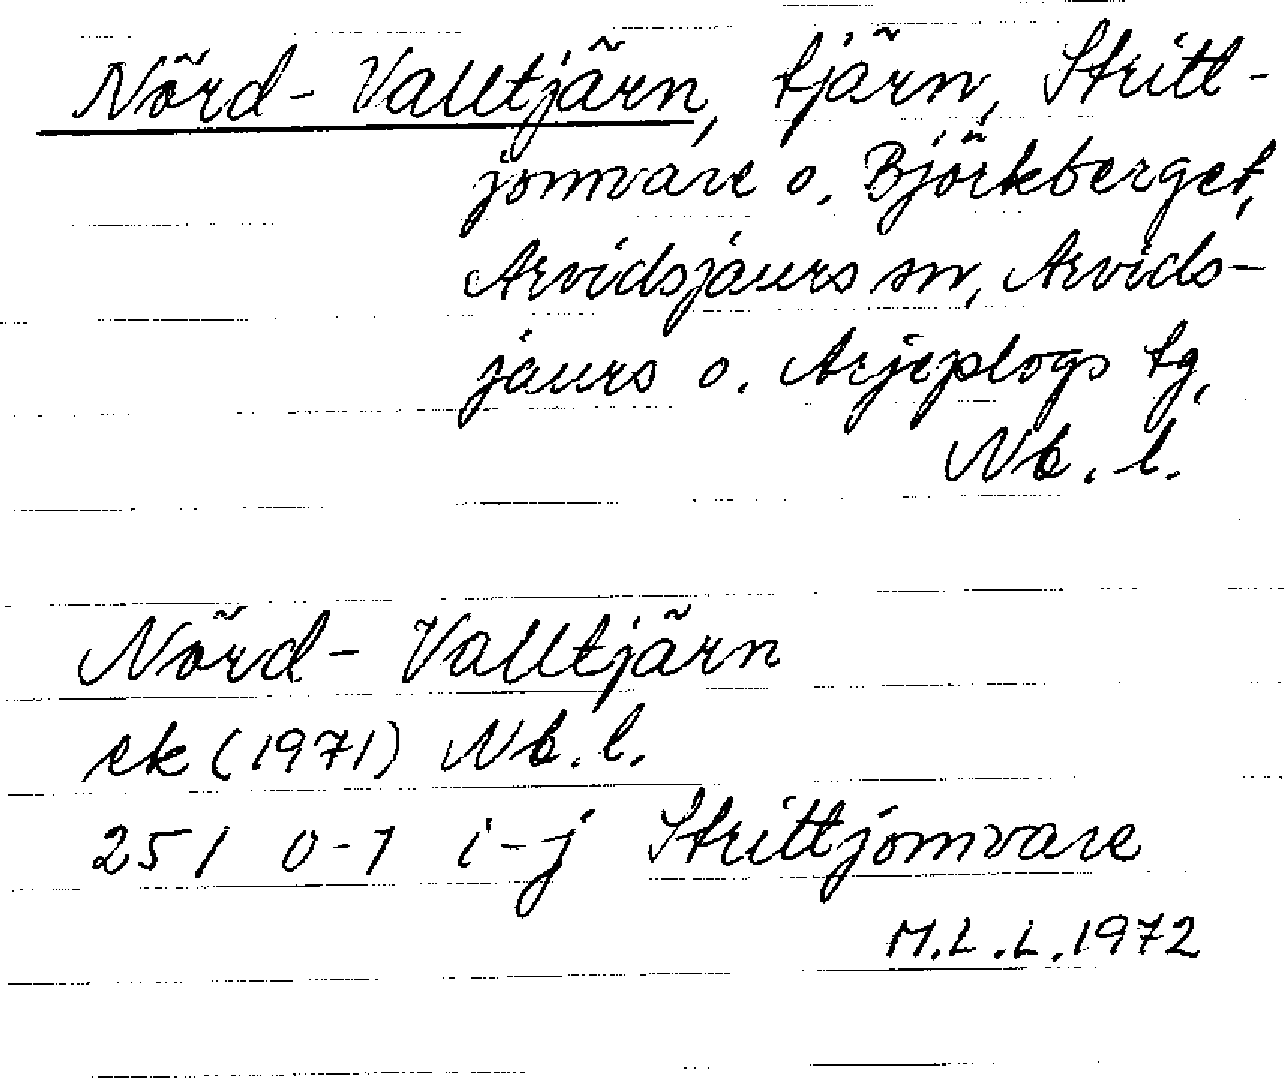 Nörd-Valltjärn, tjärn, Stritt-
jomvare o. Björkberget,
Arvidsjaurs sn, Arvids-
jaurs o. Arjeplogs tg,
Nb. l.
Nörd-Valltjärn
ek (1971) Nb. l.
251 0-1 i-j Strittjomvare
M.L.L. 1972